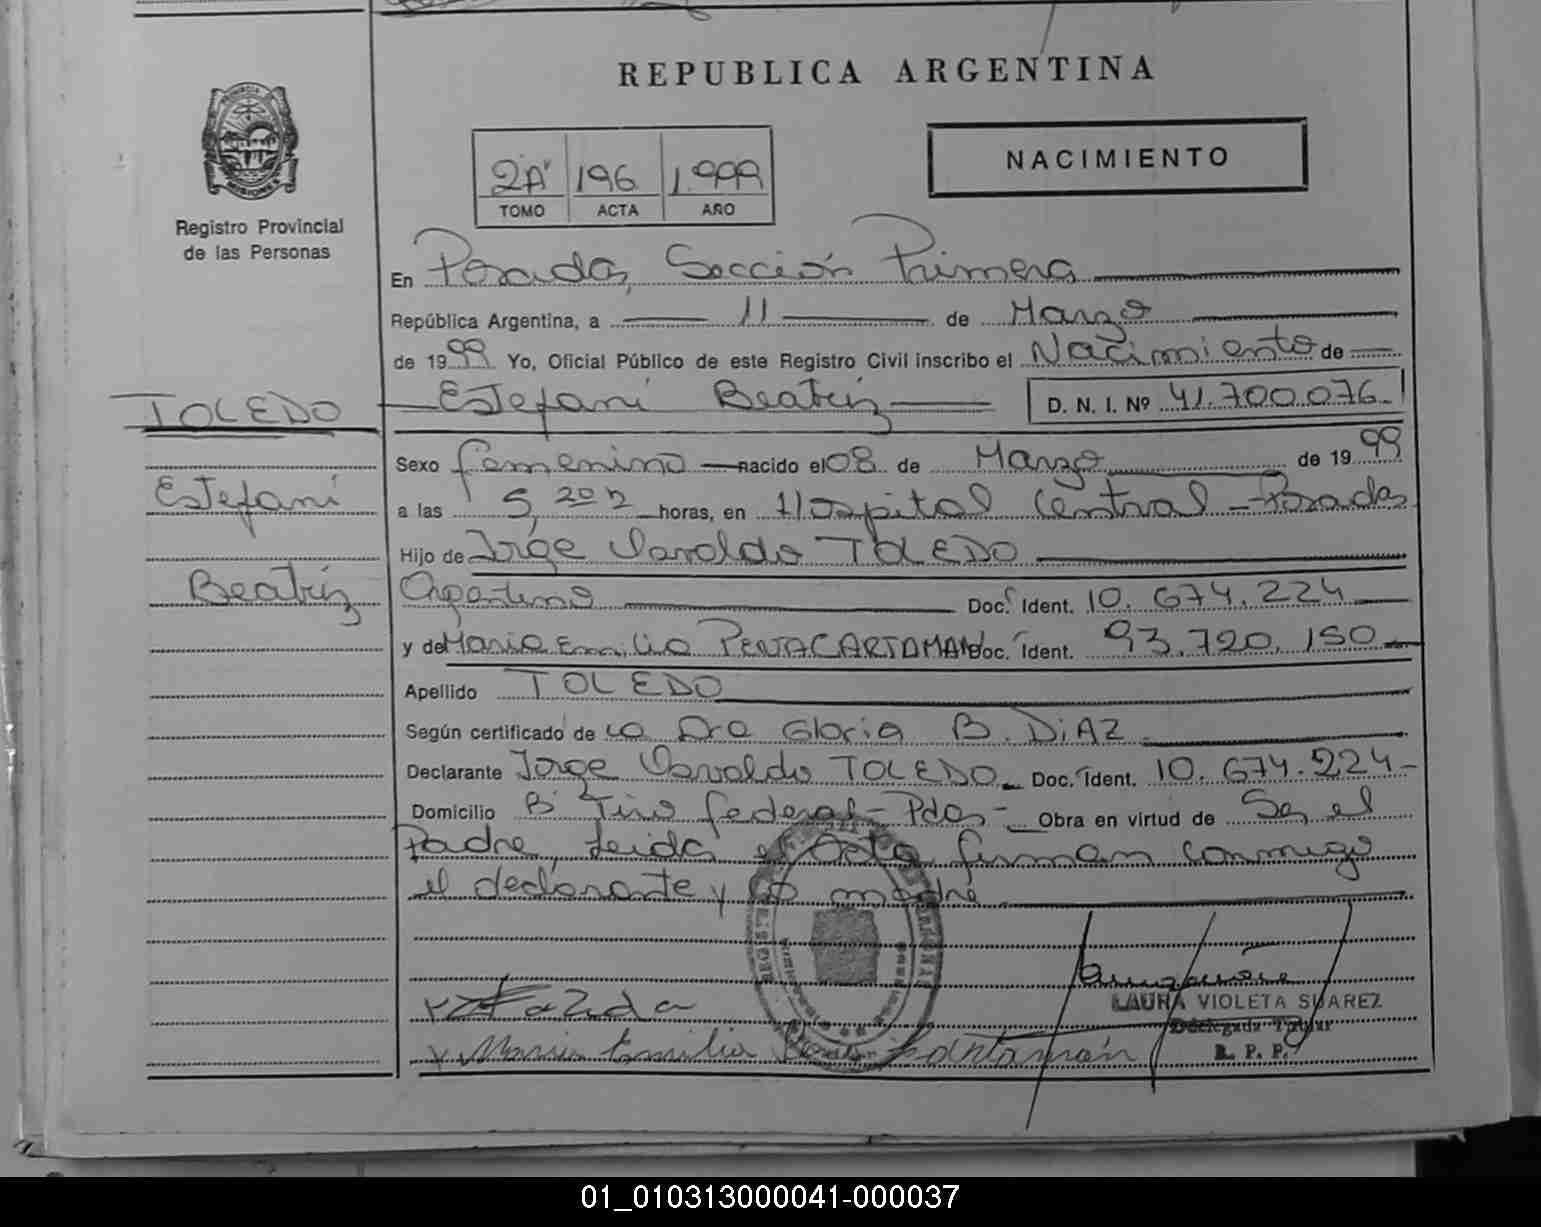 REPUBLICA ARGENTINA
Registro Provincial
de las Personas
2"A" 196 1.999
TOMO ACTA AÑO
NACIMIENTO
En Posadas, Sección Primera
República Argentina, a 11 de Marzo
de 1999 Yo, Oficial Público de este Registro Civil inscribo el Nacimiento de
TOLEDO
Estefani
Beatriz
Estefani Beatriz D. N. I. Nº 41.700.076
Sexo femenino nacido el 08 de Marzo de 1999
a las 5,20 h horas, en Hospital Central - Posadas
Hijo de Jorge Osvaldo TOLEDO
Argentino Doc. Ident. 10.674.224
y de Maria Emilia Doc. Ident. 93.720.150
Apellido TOLEDO
Según certificado de la Dra Gloria B. DiAZ
Declarante Jorge Osvaldo TOLEDO Doc. Ident. 10.674.224
Domicilio Bº Tiro federal - Pdas - Obra en virtud de Ser el
Padre, leida el acta firman conmigo
el declarante y la madre
LAURA VIOLETA SUAREZ
Delegada Titular
R. P. P.
Maria Emilia Cartamán
01_010313000041-000037